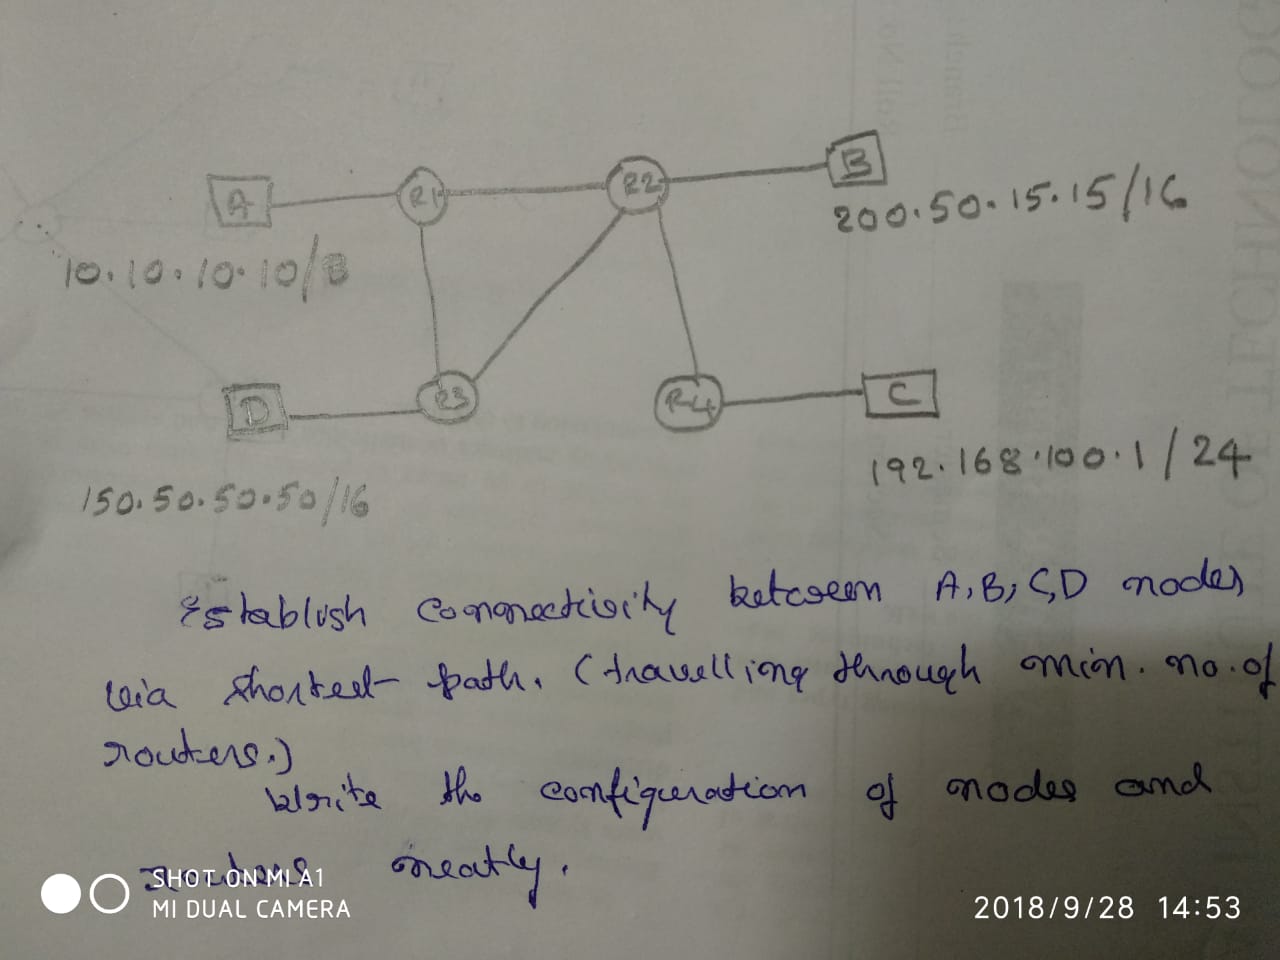 A
R1
R2
B
200.50.15.15/16
10.10.10.10/8
D
R3
R4
C
192.168.100.1/24
150.50.50.50/16
Establish connectivity between A,B,C,D nodes
via shortest path. (travelling through min. no. of
routers.)
Write the configuration of nodes and
routers neatly.
SHOT ON MI A1
MI DUAL CAMERA
2018/9/28 14:53